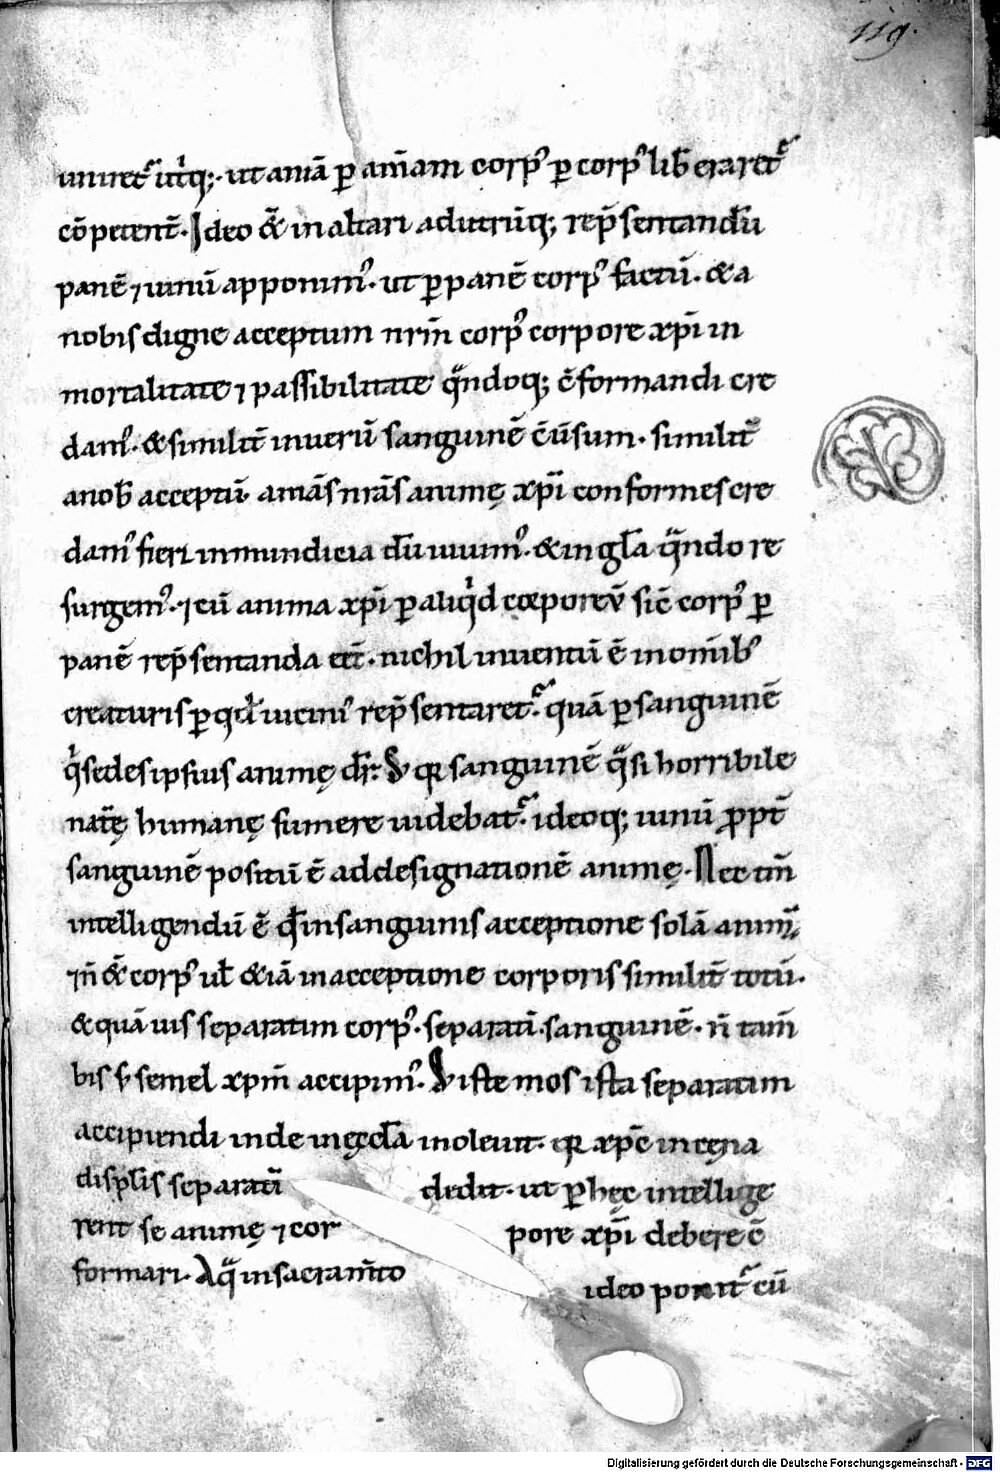 119.
uniret᷑ ut̾q;· ut aniā ꝑ anīam corpꝰ ꝑ corpꝰ lib̄eraret᷑
cōpetent̄. Ideo & in altari ad utrūq; rep̄sentandū
panē ⁊ uinū apponimꝰ. ut ꝑ panē corpꝰ factū. & a
nobis digne acceptum nr̄m corpꝰ corpore xp̄i in
mortalitate ⁊ passibilitate qͣndoq; c̄formandi cre
damꝰ. & similit̄ in uerū sanguinē c̄ūsum. similit᷑
a nob̄ acceptū animās nr̄as animę xp̄i conformes cre
damꝰ fieri in mundicia dū uiuimꝰ. & in gl̄a qͣndo re
surgemꝰ. ⁊ cū anima xp̄i ꝑ aliqͥd corporeū sic̄ corpꝰ ꝑ
panē rep̄sentanda eēt. nichil inuentū ē in omīb;
creaturis ꝑ qd̄ uicinꝰ rep̄sentaret᷑. quā ꝑ sanguinē
qͥ sedes ipsius animę dr̄. S; qꝛ sanguinē qͣsi horribile
nat̄ę humanę sumere uidebat᷑. ideoq; uinū ꝓpt̄
sanguinē positū ē ad designationē animę. Nec tm̄
intelligendū ē qd̄ in sanguinis acceptione solā animā
⁊ n̄ & corpꝰ ul̄ &iā in acceptione corporis similit̄ totū.
& quāuis separatim corpꝰ. separatī sanguinē. n̄ tam̄
bis s; semel xp̄m accipimꝰ. S; iste mos ista separatim
accipiendi inde in ęccl̄a inoleuit. qꝛ xp̄c in cęna
discip̄lis separatī dedit. ut ꝑ hęc intellige
rent se animę ⁊ cor pore xp̄i debere c̄
formari. Aqͣ in sacram̄to ideo ponit᷑ cū
Digitalisierung gefördert durch die Deutsche Forschungsgemeinschaft - DFG